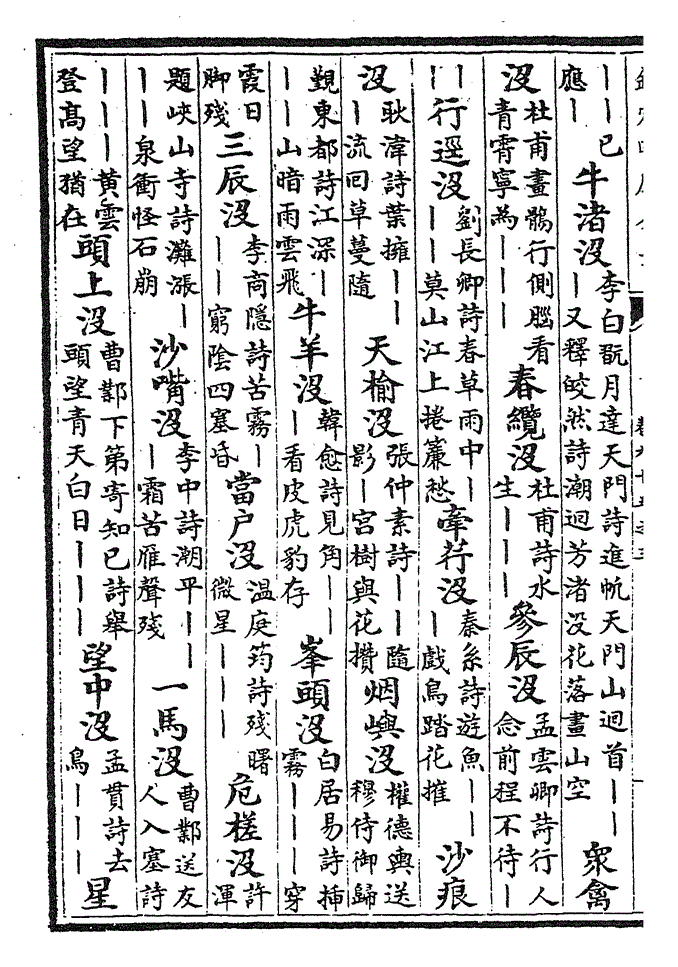 ——已應—牛渚沒李白翫月達天門詩進帆天門山迴首———又釋皎然詩潮迴芳渚没花落晝山空衆禽
沒杜甫畫鶻行側腦看青霄寧為———春纜沒杜甫詩水生———參辰沒孟雲卿詩行人念前程不待—
————行逕沒劉長卿詩春草雨中———莫山江上捲簾愁牽荇沒秦系詩遊魚———戲鳥踏花摧沙痕
沒耿湋詩葉擁———流回草蔓隨天榆沒張仲素詩——隨影—宮樹與花攢烟嶼沒權德輿送穆侍御歸
覲東都詩江深———山暗雨雲飛牛羊沒韓愈詩見角———看皮虎豹存峯頭沒白居易詩揷霧———穿
霞日脚殘三辰沒李商隱詩苦霧———窮陰四塞昏當户沒温庭筠詩殘曙微星———危槎沒許渾
題峽山寺詩灘漲———泉衝怪石崩沙嘴沒李中詩潮平———霜苦雁聲殘一馬沒曹鄴送友人入塞詩
———黄雲登髙望猶在頭上沒曹鄴下第寄知己詩舉頭望青天白日———望中沒孟貫詩去鳥———星